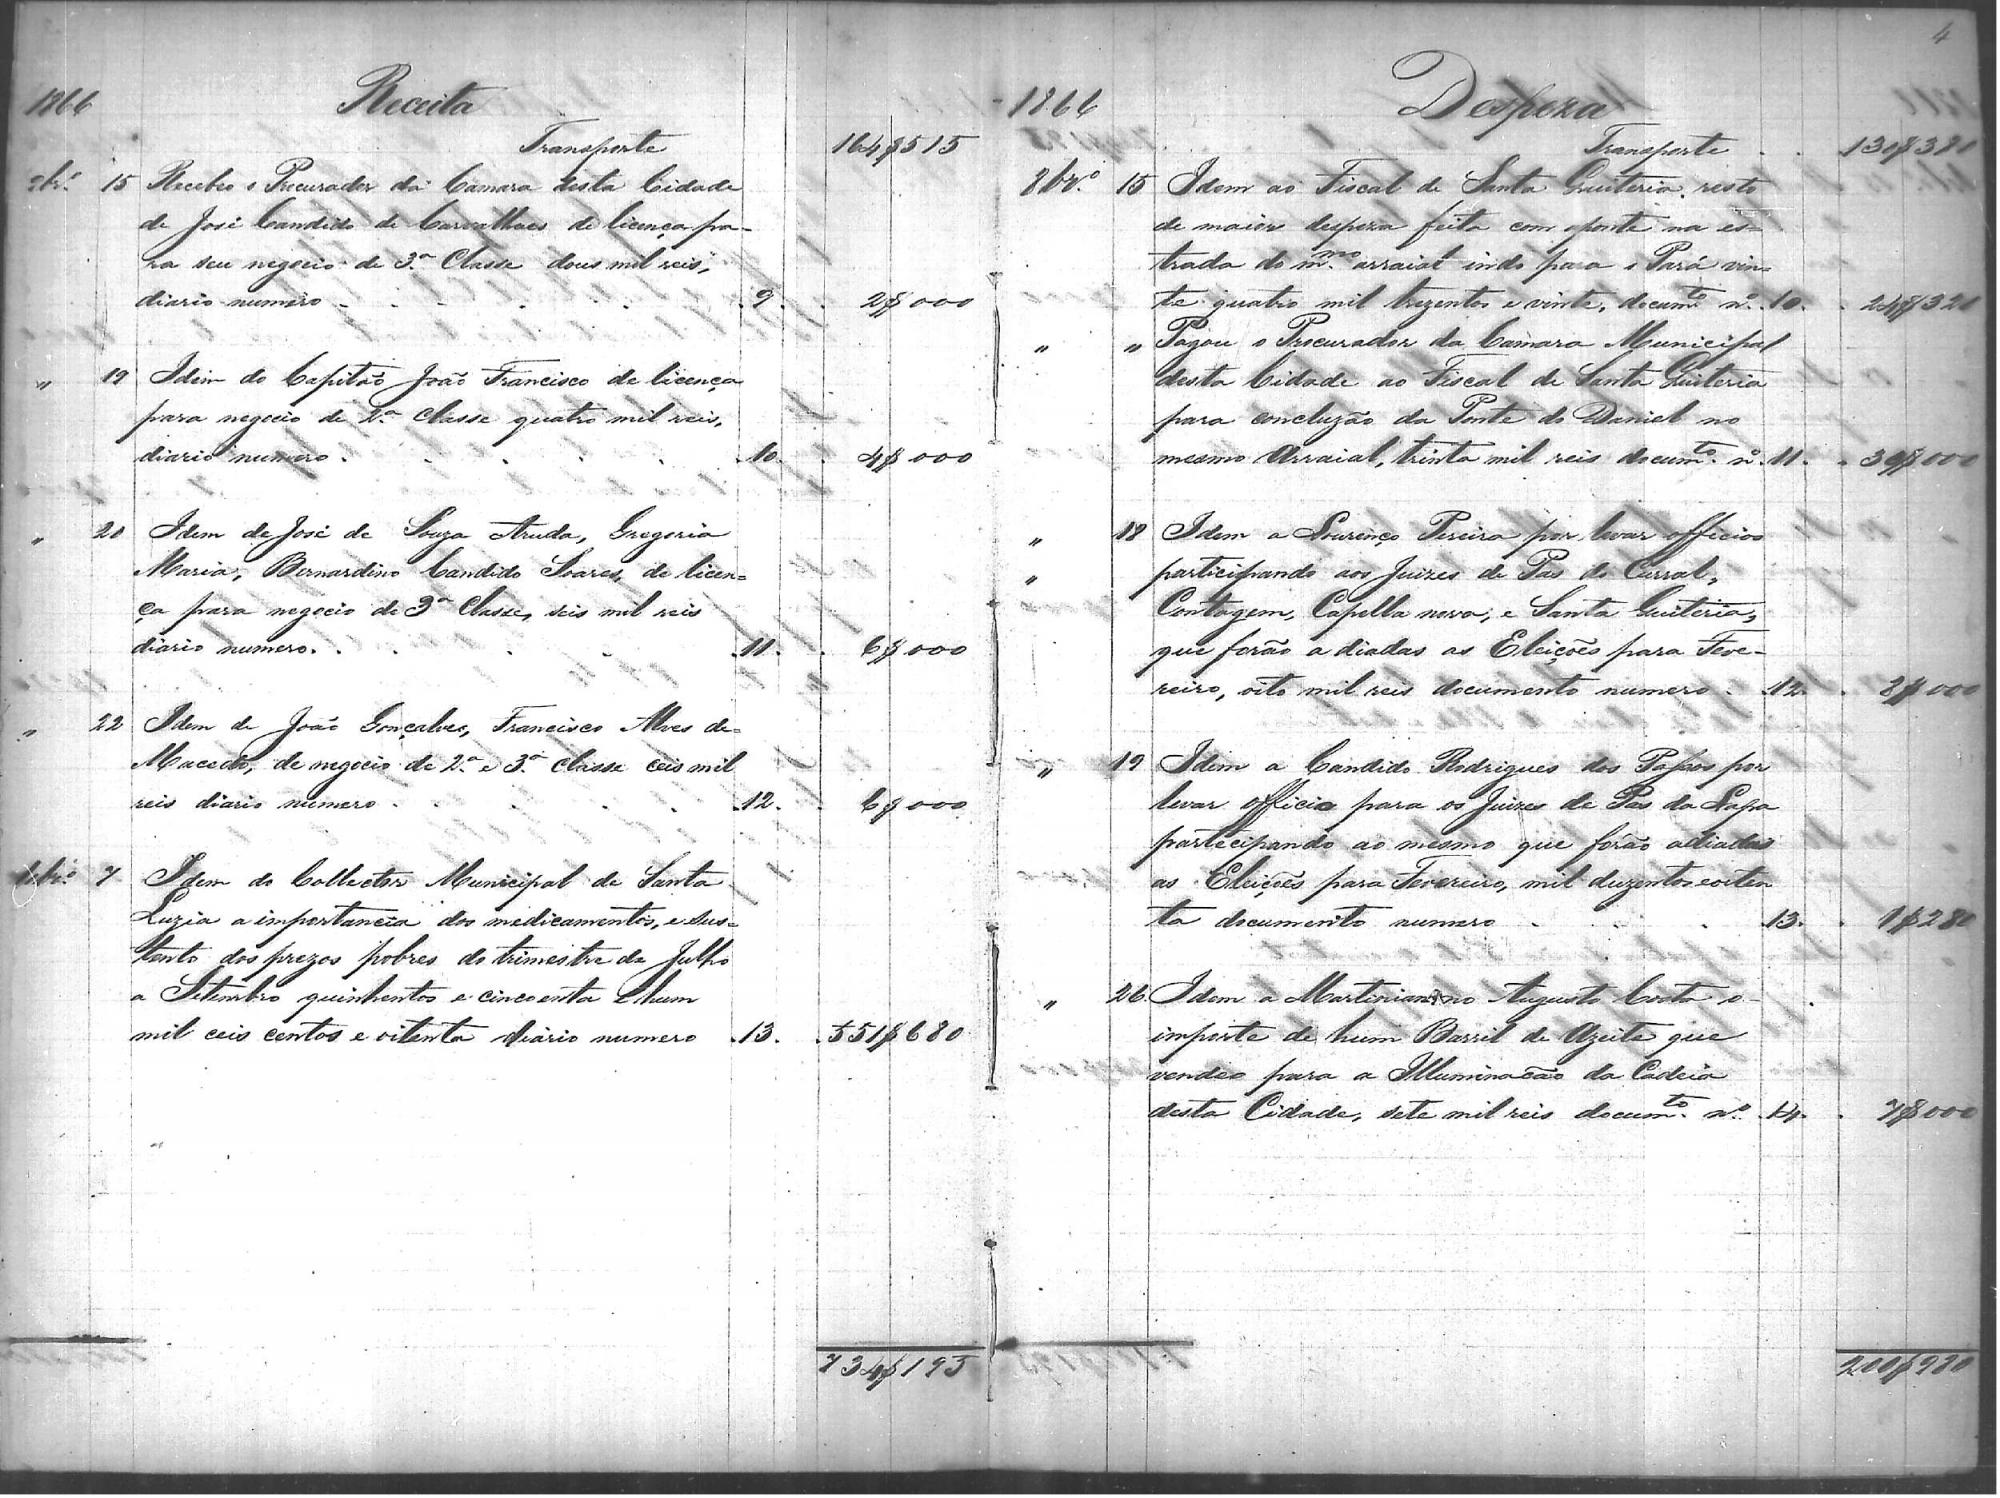 1866 Receita
Transporte 164$515
9br.o 15 Recebeo o Procurador da Camara desta Cidade
de José Candido de Carvalhaes de licença pa-
ra seu negocio de 3.a Classe dous mil reis,
diario numero . . . . 9. 2$000
" 19 Idem do Capitão João Francisco de licença
para negocio de 2.a Classe quatro mil reis,
diario numero . . . . 10. 4$000
" 20 Idem de José de Souza Aruda, Gregoria
Maria, Bernardino Candido Soares, de licen=
ça para negocio de 3a Classe, seis mil reis
diario numero. . . . . 11. 6$000
" 22 Idem de João Gonçalves, Francisco Alves de=
Macedo, de negocio de 2.a e 3.a Classe ceis mil
reis diario numero . . . . 12. 6$000
7 Idem do Collector Municipal de Santa
Luzia a importancia dos medicamentos, e sus=
tento dos prezos pobres do trimestre de Julho
a Setembro quinhentos e cincoenta e hum
mil ceis centos e oitenta diario numero 13. 551$680
734$195
4
1866 Despeza
Transporte . . 130$380
8br.o 15 Idem ao Fiscal de Santa Quiteria resto
de maior despeza feita com aponte na es=
trada do m.mo arraial indo para o Pará vin=
te quatro mil trezentos e vinte, docum.to n.o 10. 24$320
" " Pagou o Procurador da Camara Municipal
desta Cidade ao Fiscal de Santa Quiteria
para concluzão da Ponte do Daniel no
mesmo Arraial, trinta mil reis docum.to n.o 11. 30$000
" 18 Idem a Lourenço Pereira por levar officios
" participando aos Juizes de Pas do Curral,
Contagem, Capella nova, e Santa Quiteria,
que forão a diadas as Eleições para Feve-
reiro, oito mil reis documento numero . 12. 8$000
" 19 Idem a Candido Rodrigues dos Passos por
levar officio para os Juizes de Pas da Lapa
partecipando ao mesmo que forão adiadas
as Eleições para Fevereiro, mil duzentos eoiten
ta documento numero . . . 13. 1$280
" 26 Idem a Martiniano Augusto Costa o-
importe de hum Barril de Azeite que
vendeo para a Illuminacão da Cadeia
desta Cidade, sete mil reis docum.to n.o 14. 7$000
200$980